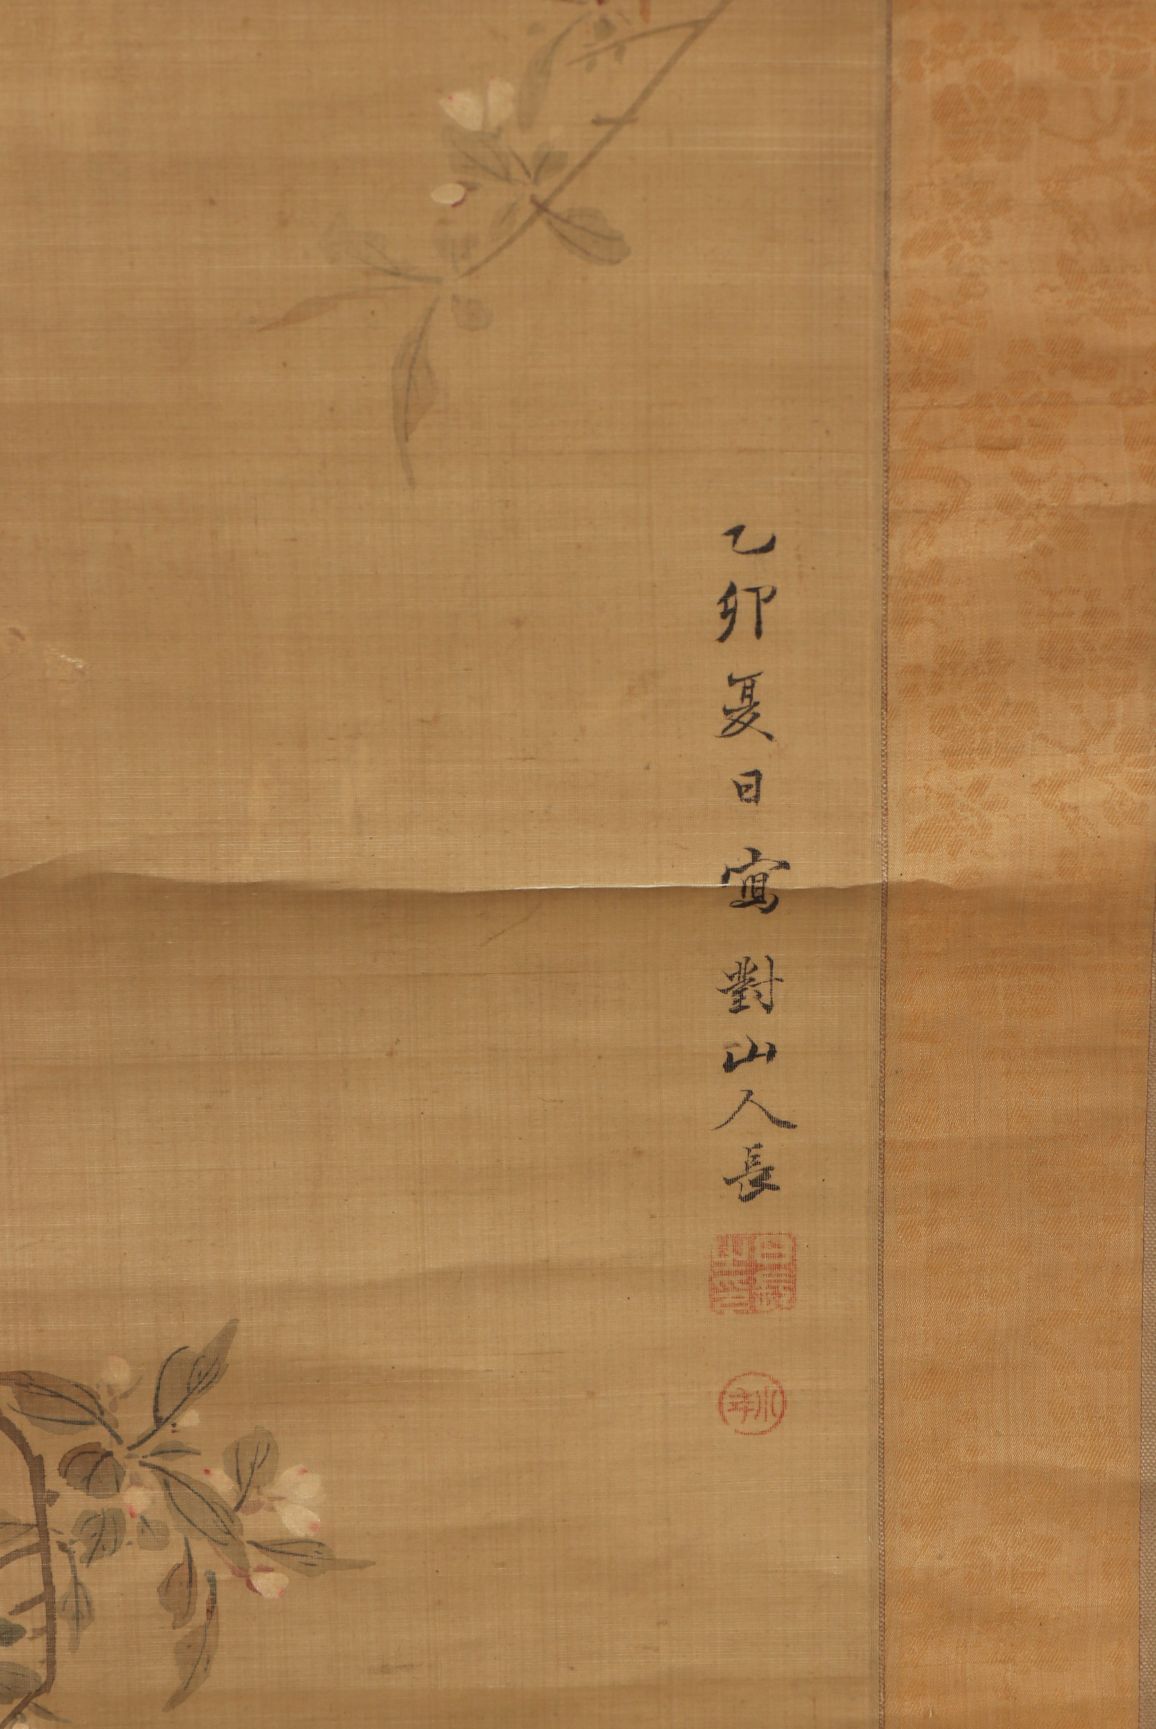 乙卯夏日寫對山人長